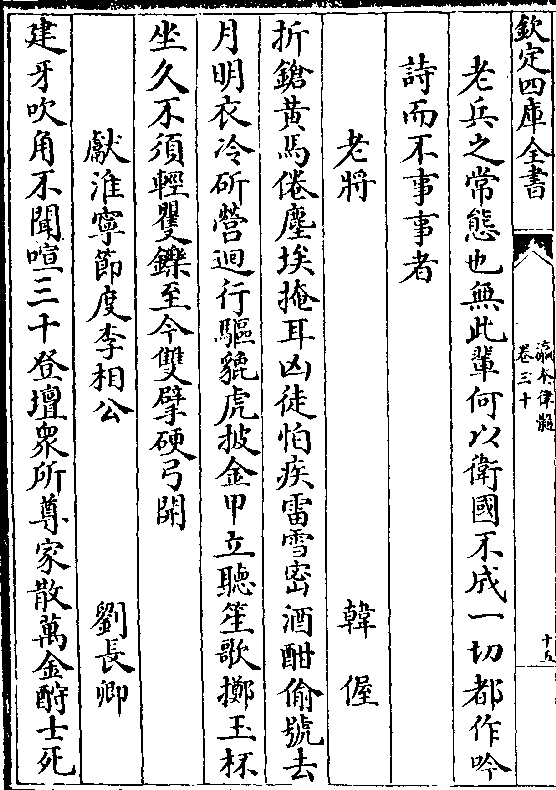 欽定四庫全書
瀛奎律髓
卷三十
十五
老兵之常態也無此輩何以衛國不成一切都作吟
詩而不事事者
老將 韓偓
折鎗黃馬倦塵埃掩耳凶徒怕疾雷雪密酒酣偷號去
月明衣冷斫營迴行驅貔虎披金甲立聽笙歌擲玉杯
坐久不須輕矍鑠至今雙擘硬弓開
獻淮寧節度李相公 劉長卿
建牙吹角不聞喧三十登壇衆所尊家散萬金酧士死